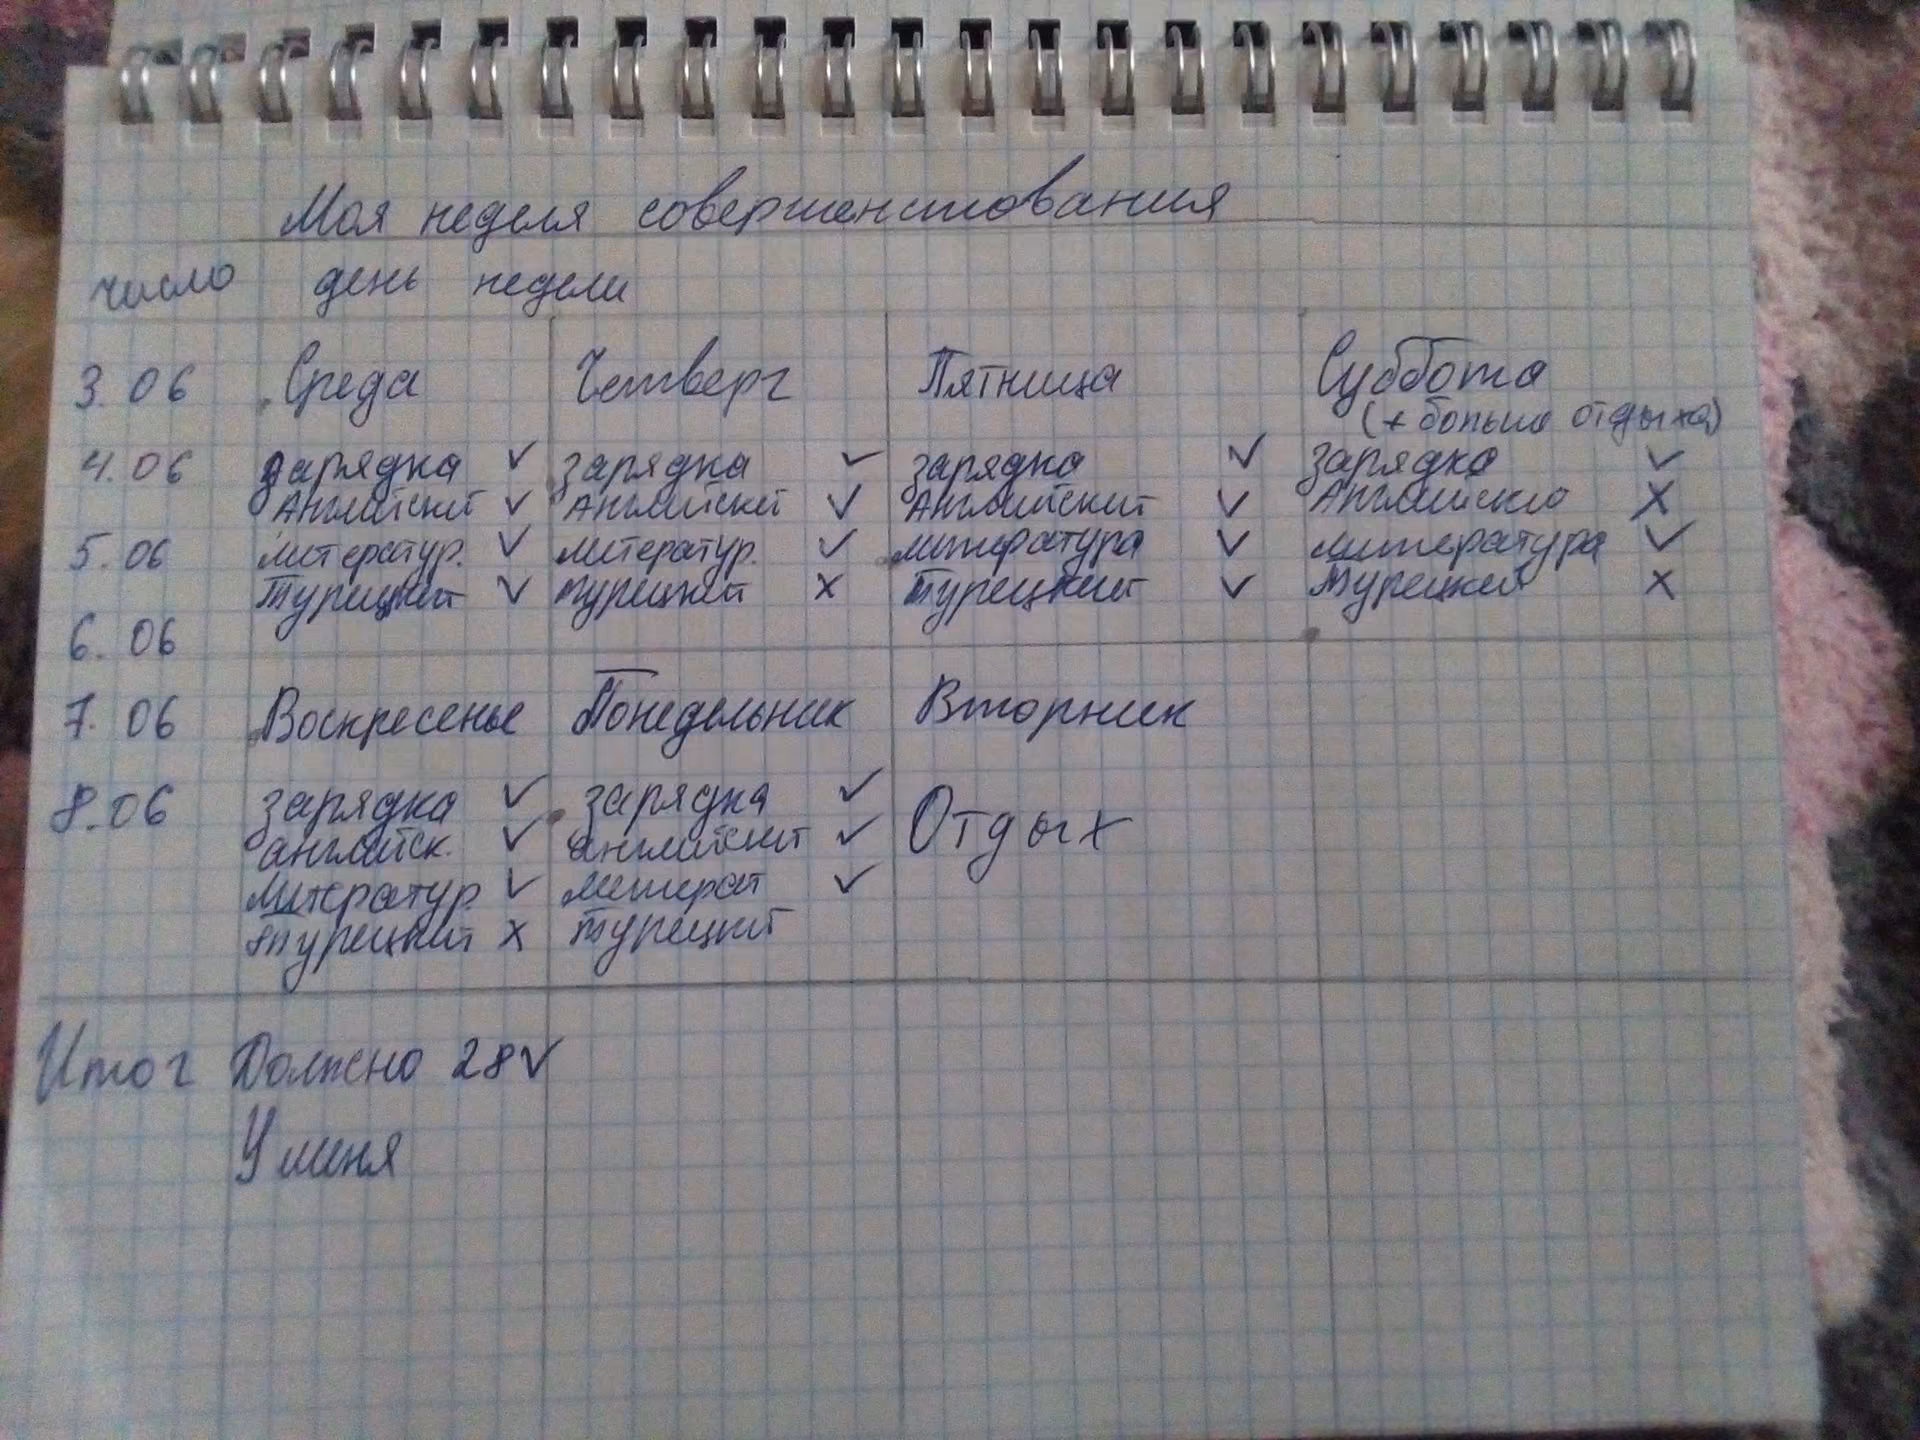 Моя неделя совершенстования
число день недели
3.06 Среда Четверг Пятница Суббота
(+ больше отдыха)
4.06 зарядка ✓ зарядка ✓ зарядка ✓ зарядка ✓
Английский ✓ Английский ✓ Английский ✓ Английский X
5.06 литератур. ✓ литератур. ✓ литература ✓ литература ✓
Турецкий ✓ турецкий x Турецкий ✓ Турецкий x
6.06
7.06 Воскресенье Понедельник Вторник
8.06 зарядка ✓ зарядка ✓ Отдых
английск. ✓ английский ✓
литератур. ✓ литерат ✓
турецкий x турецкий
Итог Должно 28 ✓
У меня